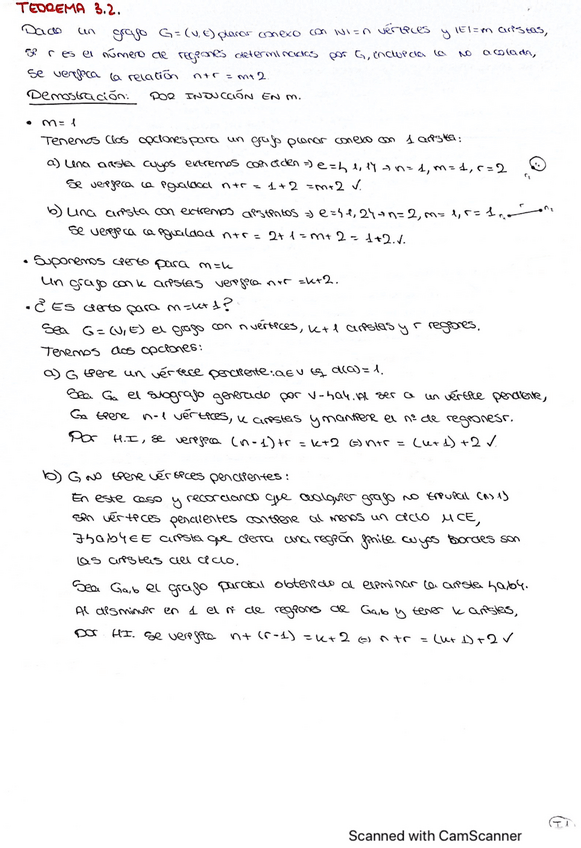 TEOREMA 3.2.
Dado un grafo G=(V,E) planar conexo con |V|=n vértices y |E|=m aristas,
si r es el número de regiones determinadas por G, incluida la no acotada,
se verifica la relación n+r=m+2
Demostración: POR INDUCCIÓN EN m.
• m=1
Tenemos dos opciones para un grafo planar conexo con 1 arista:
a) Una arista cuyos extremos coinciden ⇒ e={1,1} → n=1, m=1, r=2
Se verifica la igualdad n+r = 1+2 =m+2 ✓.
b) Una arista con extremos distintos ⇒ e={1,2} → n=2, m=1, r=1
Se verifica la igualdad n+r = 2+1 = m+2 = 1+2.✓.
• Suponemos cierto para m=k
Un grafo con k aristas verifica n+r=k+2.
• ¿Es cierto para m=k+1?
Sea G=(V,E) el grafo con n vértices, k+1 aristas y r regiones.
Tenemos dos opciones:
a) G tiene un vértice pendiente: a∈V tq d(a)=1.
Sea Ga el subgrafo generado por V-{a}. Al ser a un vértice pendiente,
Ga tiene n-1 vértices, k aristas y mantiene el nº de regiones r.
Por H.I, se verifica (n-1)+r = k+2 ⇔ n+r = (k+1)+2 ✓
b) G no tiene vértices pendientes:
En este caso y recordando que cualquier grafo no trivial (n>1)
sin vértices pendientes contiene al menos un ciclo μCE,
∃{a,b}∈E arista que cierra una región finita cuyos bordes son
las aristas del ciclo.
Sea Ga,b el grafo parcial obtenido al eliminar la arista {a,b}.
Al disminuir en 1 el nº de regiones de Ga,b y tener k aristas,
por HI. se verifica n+(r-1) = k+2 ⇔ n+r = (k+1)+2 ✓
Scanned with CamScanner